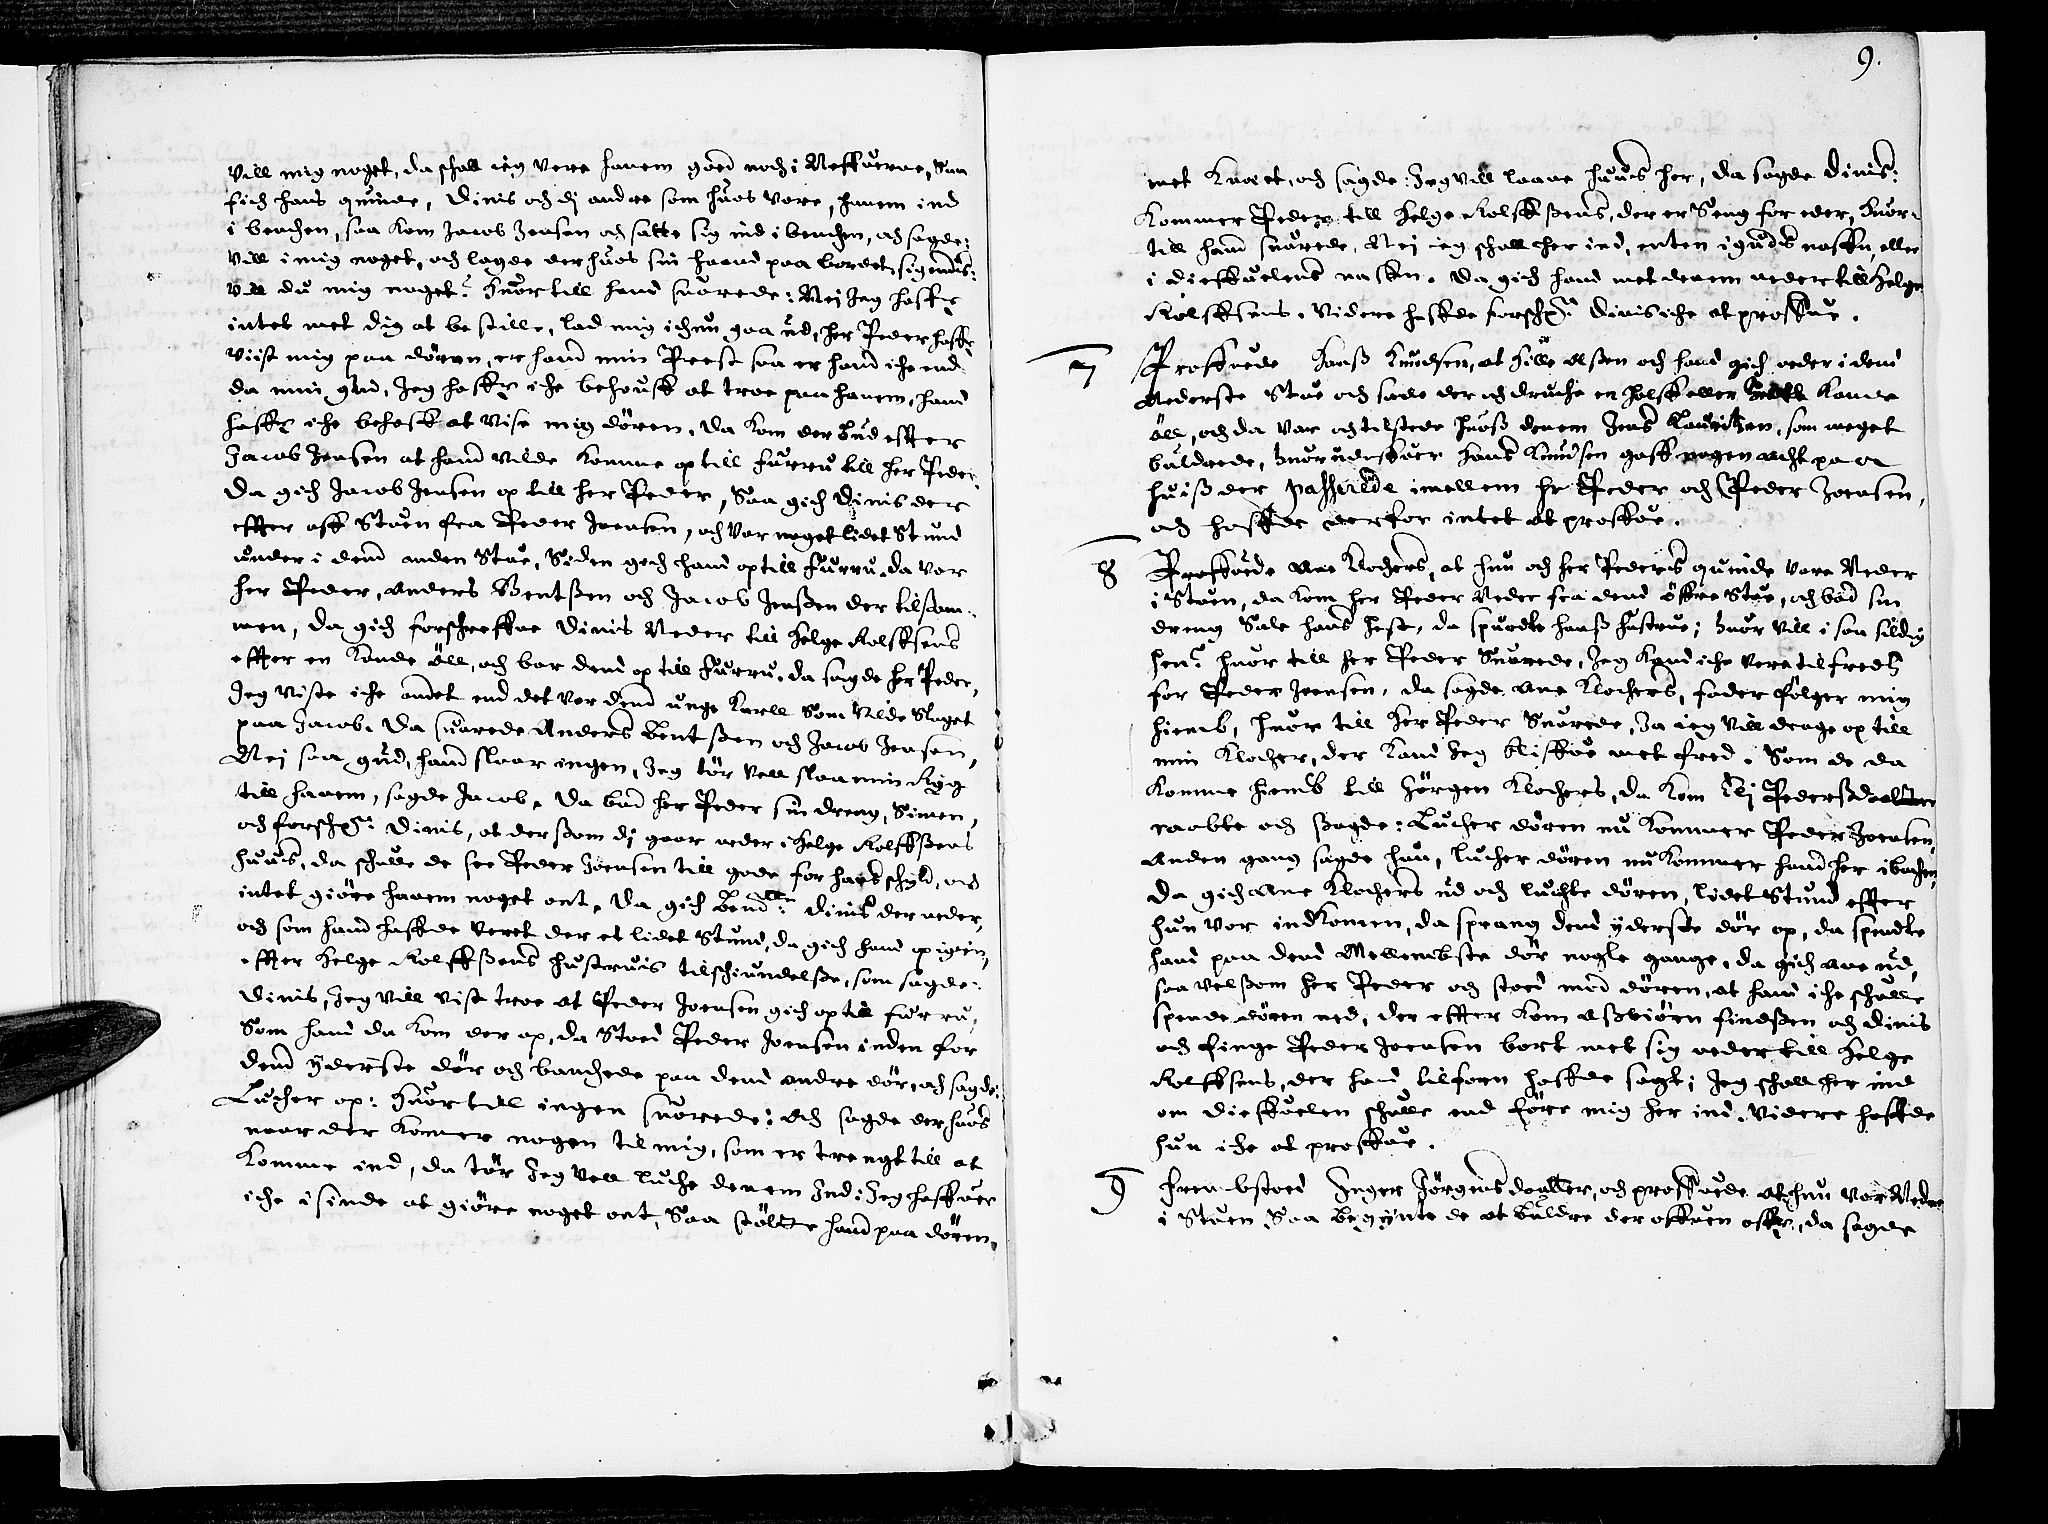 vill mig noget, da schall ieg vere hanem goed noch i Neffuerne, Saa
fich hans quinde, Dinis och dj andre som huos vore, hanem ind
i benchen, saa kom Jacob Jensen och satte sig ind i benchen, och sagde:
vill i mig noget, och lagde der huos sin haand paa bordet, sigendis:
Vill du mig noget? Huor till hand suorede: Nej Jeg haffr
intet met dig at bestille, lad mig ichun gaa ud, her Peder haffr
viist mig paa dören, er hand min Prest saa er hand iche end
da min gud, Jeg haffr iche behouff at troe paa hanem, hand
haffr iche behoff at vise mig dören, da kom der Bud effter
Jacob Jensen at hand vilde komme op till furru till her Peder,
Da gich Jacob Jensen op till her Peder, Saa gich Dinis der
effter aff Stuen fra Peder Joensen, och var noget lidet Stund
under i dend anden Stue, Siden gich hand op till furru, da var
her Peder, Anders Bentßen och Jacob Jenßen der tilsam-
men, da gich forschreffne Dinis Neder till Helge Rolffsens
effter en Kande öll, och bar dend op till furru, da sagde her Peder,
Jeg viste iche andet end det var dend unge Karll Som vilde Slaget
paa Jacob, Da suarede Anders Bentßen och Jacob Jensen,
Nej saa gud, hand slaar ingen, Jeg tör vell slaa min Rygg
till hanem, sagde Jacob, Da bad her Peder sin dreng, Simen,
och forschne: Dinis, at dersom dj gaar neder i Helge Rolffßens
huus, da schulle de see Peder Joensen till gode for hans schyld, och
intet giöre hanem noget ont, Da gich Bemlte: Dinis der neder,
och som hand haffde veret der et lidet Stund, da gich hand op igien,
effter Helge Rolffßens hustruis tilschundelße, som sagde:
Dinis, Jeg vill vist troe at Peder Joensen gich op till furru,
Som hand da kom der op, da Stoed Peder Joensen inden for
dend yderste dör och banchede paa dend andre dör, och sagde:
Lucher op: Huor till ingen suorede: och sagde der huos
naar der kommer nogen til mig, som er trengt till at
komme ind, da tör Jeg vell luche denem Ind: Jeg haffuer
iche i sinde at giöre noget ont, Saa stölte hand paa dören,
9.
met Knoet, och sagde: Jeg vill laane huus her, da sagde Dinis:
Kommer Peder till Helge Rolffßens, der er Seng for eder, Huor-
till hand suorede, Nej ieg schall her ind, enten i guds naffn, eller
i dieffuelens naffn. Da gich hand met denem neder till Helge
Rolffsens. Videre haffde forschne: Dinis iche at proffue.
7 Proffuede Hanß Knudsen, at Hille Alßen och hand gich neder i dend
Nederste Stue och sade der och druche en halff eller Kande
öll, och da var och tilstede huoß denem Jens Lauritzen, som noget
buldrede, Huorudoffuer Hans Knudsen gaff nogen acht paa
huiß der passerede imellem hr Peder och Peder Joensen,
och haffde derfor intet at proffue.
8 Proffuede Ane Klochers, at hun och her Peders quinde vare Neder
i Stuen, da kom her Peder Neder fra dend öffre Stue, och bad sin
dreng Sale hans hest, da spurdte hanß hustrue; huor vill i saa sildig
hen? huor till her Peder Suorede, Jeg Kand iche vere til fredtz
for Peder Joensen, da sagde Ane Klochers, fader fölger mig
hiemb, huor till her Peder Suorede, Ja ieg vill drage op till
min Klocher, der kand Jeg bliffue met fred. Som de da
komme hiemb till Jörgen Klochers, da kom Elj Pederßdaatter
raabte och ßagde: Lucher dören nu kommer Peder Joensen,
Anden gang sagde hun, lucher dören nu kommer hand her i bachen,
Da gich Ane Klochers ud och luchte dören, lidet Stund effter
hun var indkomen, da sprang dend yderste dör op, da spendte
hand paa dend Mellembste dör nogle gange, da gich Ane ud,
saa velßom her Peder och stoed mod dören, at hand iche schulle
spende dören ned, der effter kom Aßbiörn findßen och Dinis
och finge Peder Joensen bort met sig neder till Helge
Rolffsens, der hand tilforn haffde sagt; Jeg schall her ind
om Dieffuelen schulle end före mig her ind. Videre haffde
hun iche at proffue.
9 Frembstoed Inger Jörgensdaatter, och proffuede at hun var Neder
i Stuen, Saa begynte de at buldre der offuen offr, da sagde